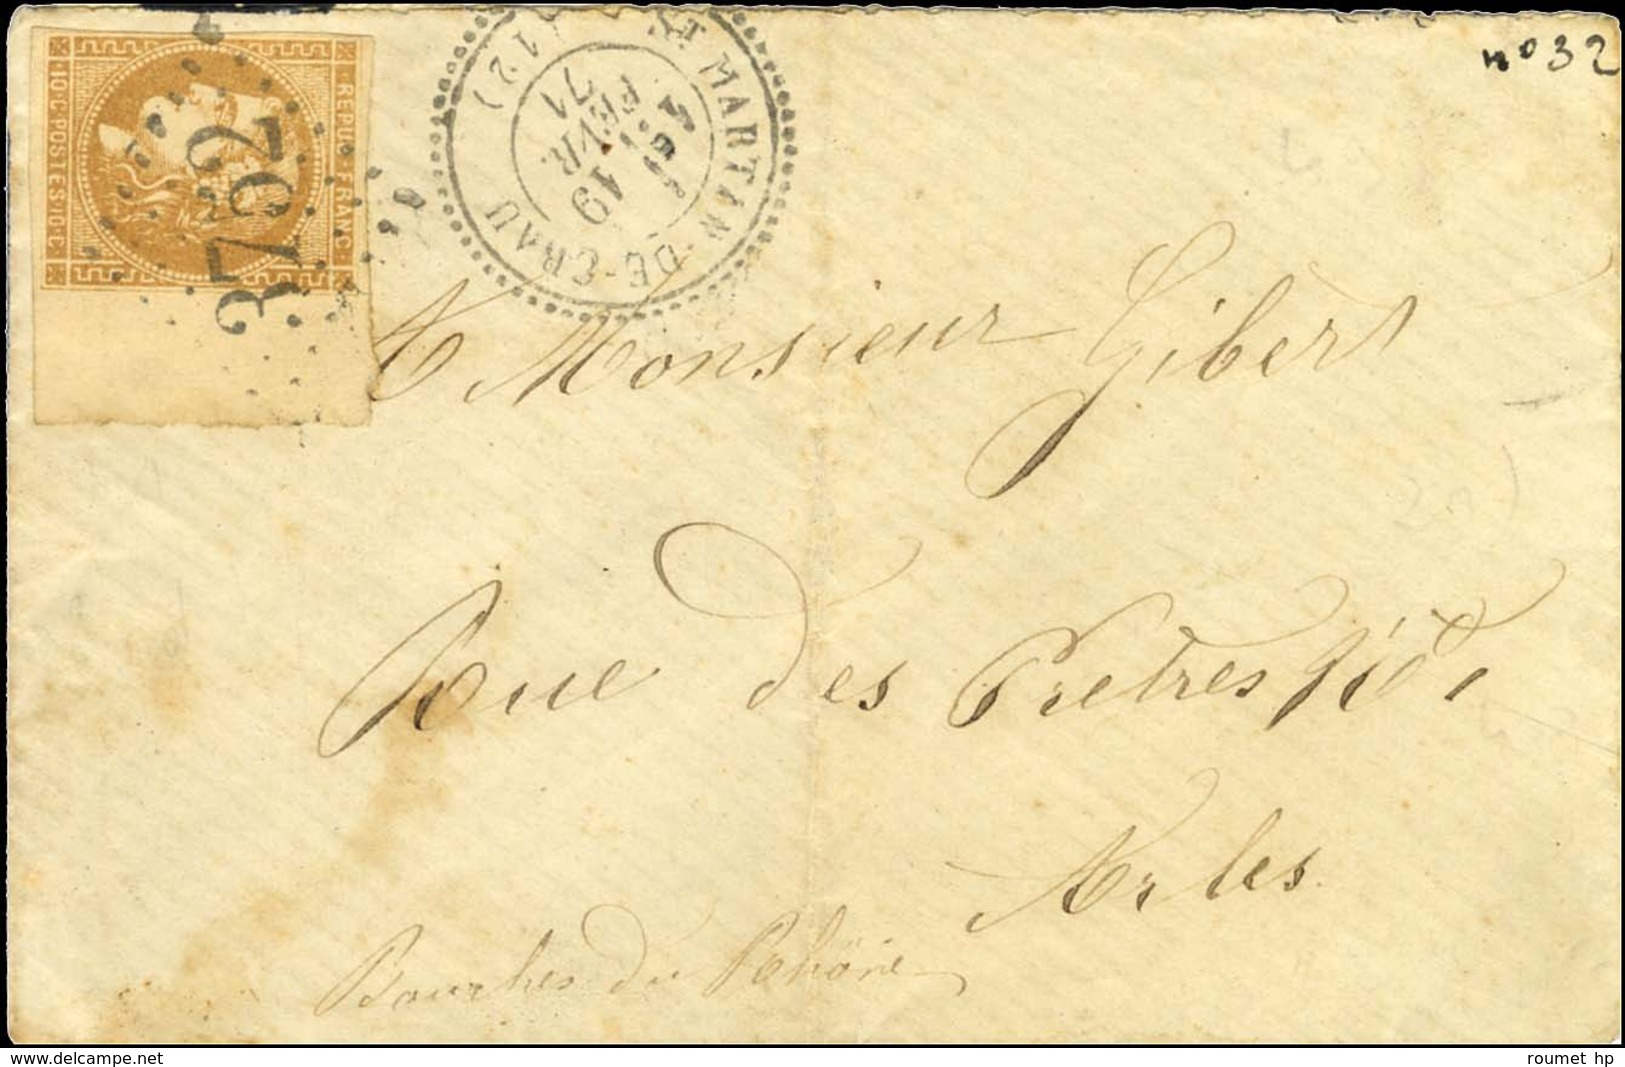 nº 32
REPUB FRANC
10 C POSTES 10 C
3762
ST MARTIN-DE-CRAU (12)
19
FEVR.
71
A Monsieur Gibert
Rue des Pretres
Arles
Bouches du Rhône
www.delcampe.net
roumet hp